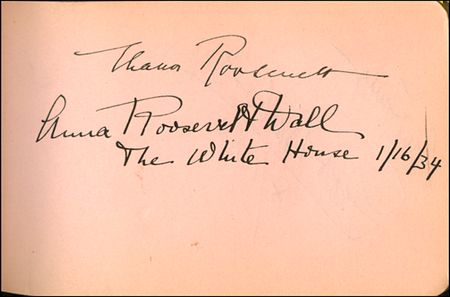 Eleanor Roosevelt
Anna Roosevelt Dall
The White House 1/16/34